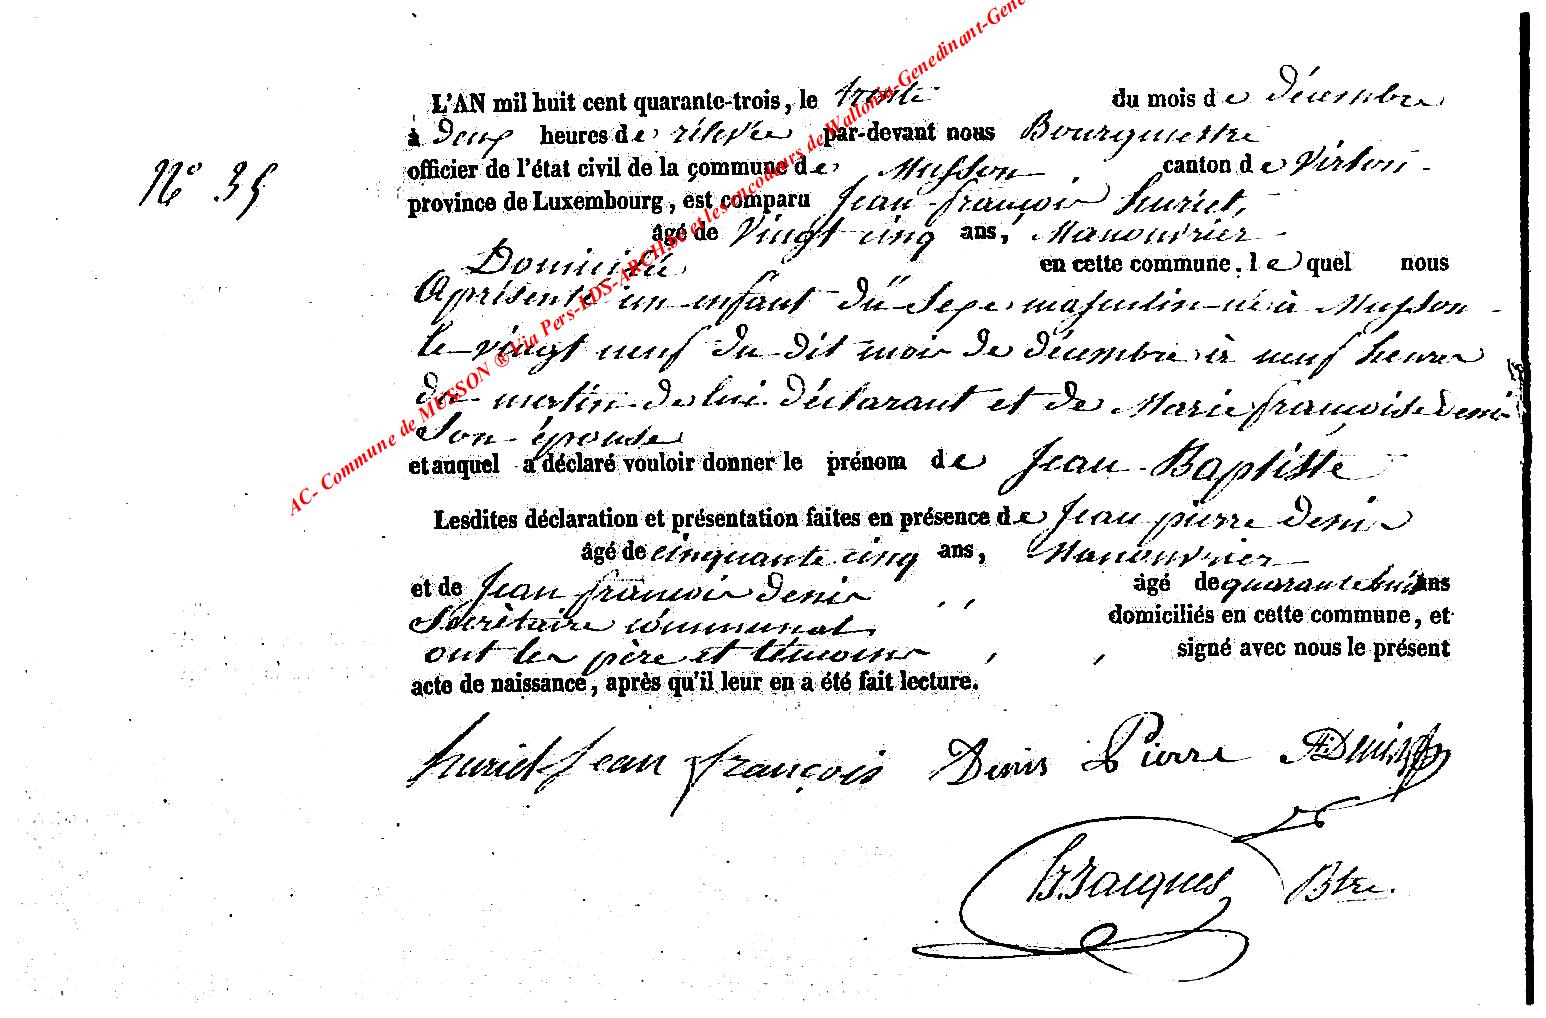 L'AN mil huit cent quarante-trois, le trente du mois de décembre
à deux heures de rélevée par-devant nous Bourgmestre
N° 35 officier de l'état civil de la commune de Musson canton de Virton
province de Luxembourg, est comparu Jean françois huriet,
âgé de Vingt cinq ans, Manouvrier
Domicilié en cette commune. le quel nous
a présenté un enfant du Sexe masculin né à Musson
le vingt neuf du dit mois de décembre à neuf heures
du matin de lui déclarant et de Marie françoise denis
Son épouse
et auquel a déclaré vouloir donner le prénom de Jean Baptiste
Lesdites déclaration et présentation faites en présence de Jean pierre denis
âgé de cinquante cinq ans, Manouvrier
et de Jean françois denis âgé de quarante huit ans
Secrétaire communal domiciliés en cette commune, et
ont les père et témoins signé avec nous le présent
acte de naissance, après qu'il leur en a été fait lecture.
huriet Jean françois Denis Pierre Denis
Jacques Btre.
AC- Commune de MUSSON ® Via Pers-LDS-ARCH.be et les encodeurs de Wallonia-Genedinant-Gene